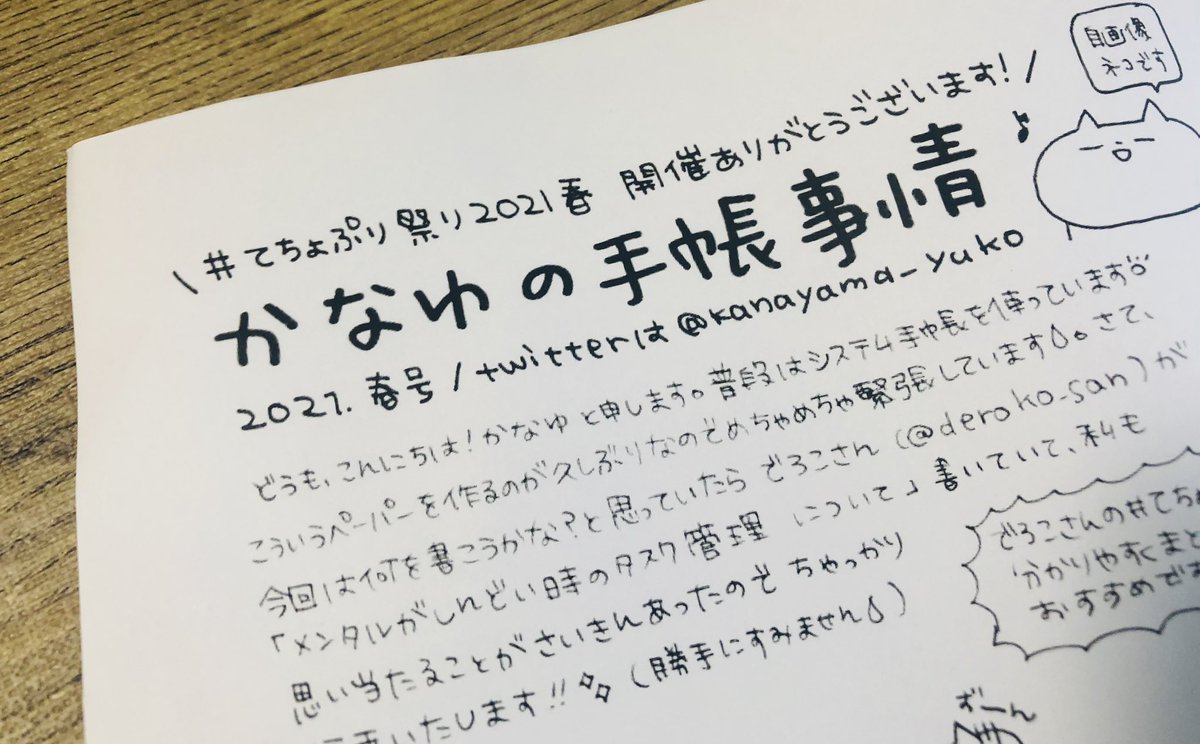 自画像
ネコです
\ #てちょぷり祭り2021春 開催ありがとうございます! /
かなゆの手帳事情♪
2021.春号/twitterは@kanayama_yuko
どうも、こんにちは!かなゆと申します。普段はシステム手帳を使っています
こういうペーパーを作るのが久しぶりなのでめちゃめちゃ緊張しています。さて、
今回は何を書こうかな?と思っていたらでろこさん(@deroko_san)が
「メンタルがしんどい時のタスク管理 について」書いていて、私も
思い当たることがさいきんあったのでちゃっかり
いたします!!(勝手にすみません)
でろこさんの#てちょ
分かりやすくまと
おすすめです
ずーん